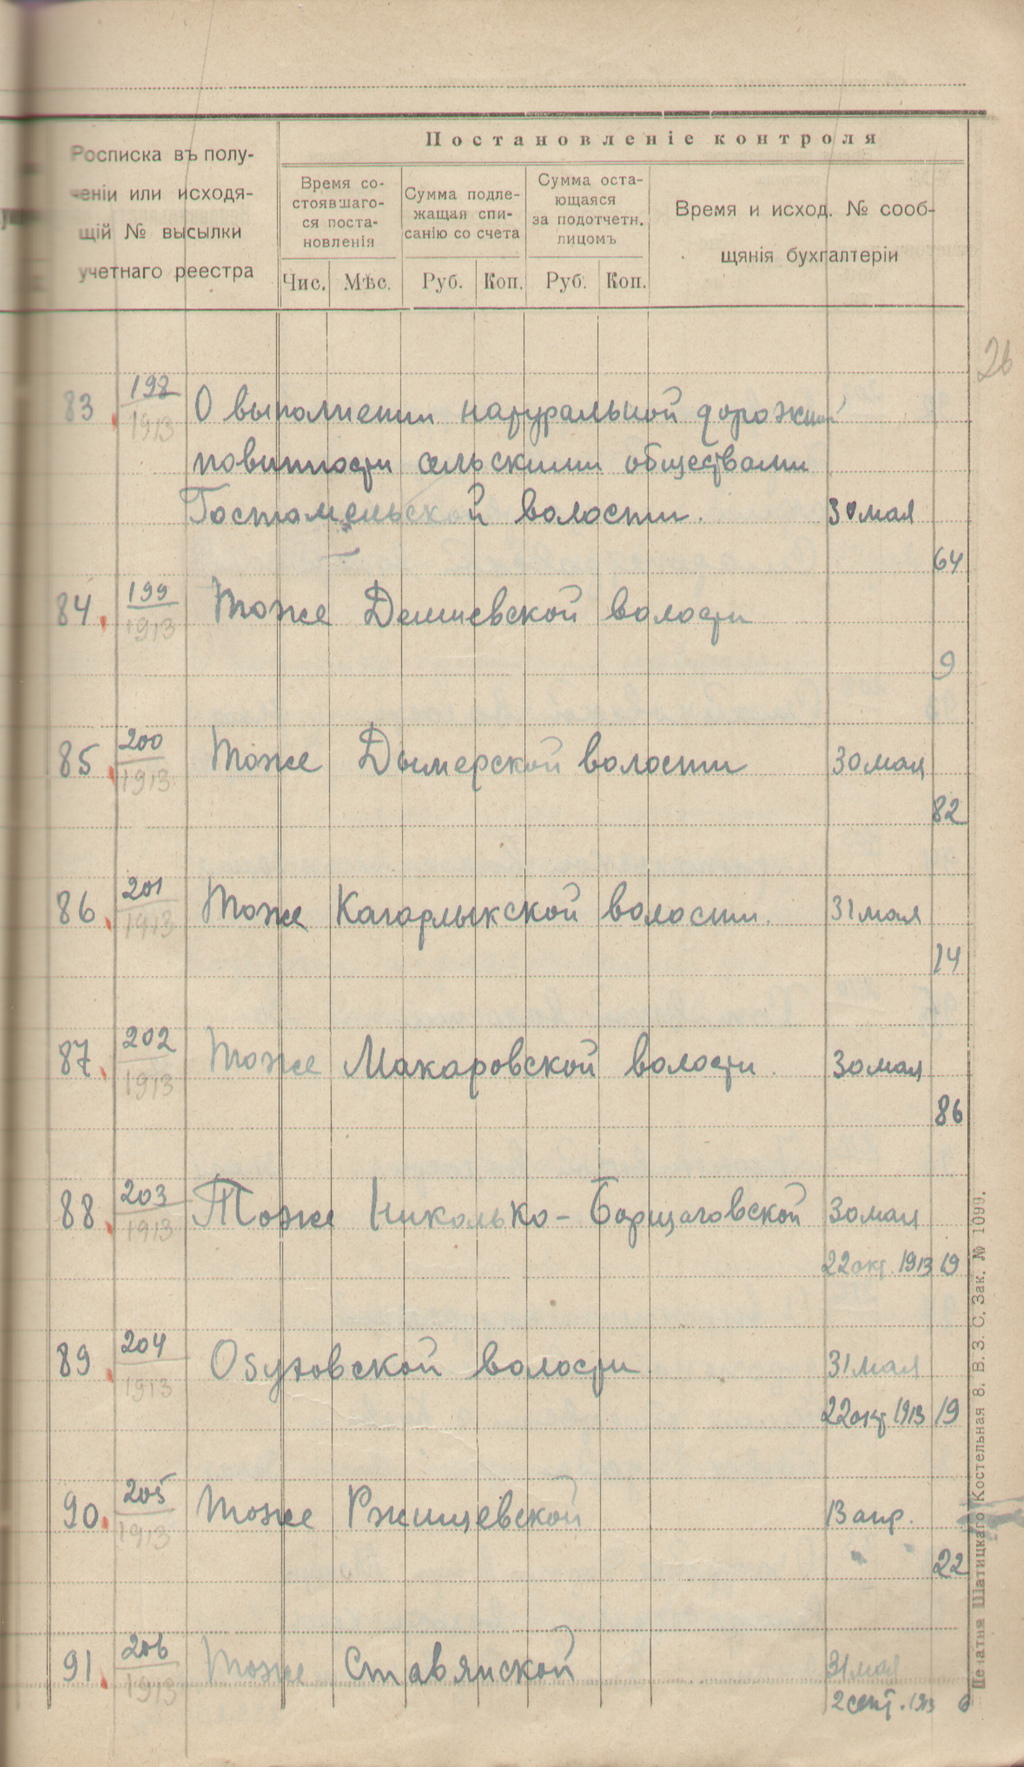 Постановленіе контроля
Росписка въ полу-
ченіи или исходя-
щій № высылки
учетнаго реестра
Время со-
стоявшаго-
ся поста-
новленія
Сумма подле-
жащая спи-
санію со счета
Сумма оста-
ющаяся
за подотчетн.
лицомъ
Время и исход. № сооб-
щянія бухгалтеріи
Чис. Мѣс. Руб. Коп. Руб. Коп.
26
83 198/1913 О выполнении натуральной дорожной
повинности сельскими обществами
Гостомельской волости. 30 мая
64
84. 199/1913 Тоже Демиевской волости
9
85 200/1913 Тоже Дымерской волости 30 мая
82
86. 201/1913 Тоже Кагарлыкской волости. 31 мая
14
87. 202/1913 Тоже Макаровской волости. 30 мая
86
88. 203/1913 Тоже Никольско-Борщаговской 30 мая
22 окт. 1913 19
89. 204/1913 Обуховской волости 31 мая
22 окт 1913 19
90. 205/1913 Тоже Ржищевской 13 апр.
22
91. 206/1913 Тоже Ставянской 31 мая
2 сент. 1913 6
Печатня Шатицкаго Костельная 8. В. З. С. Зак. № 1099.